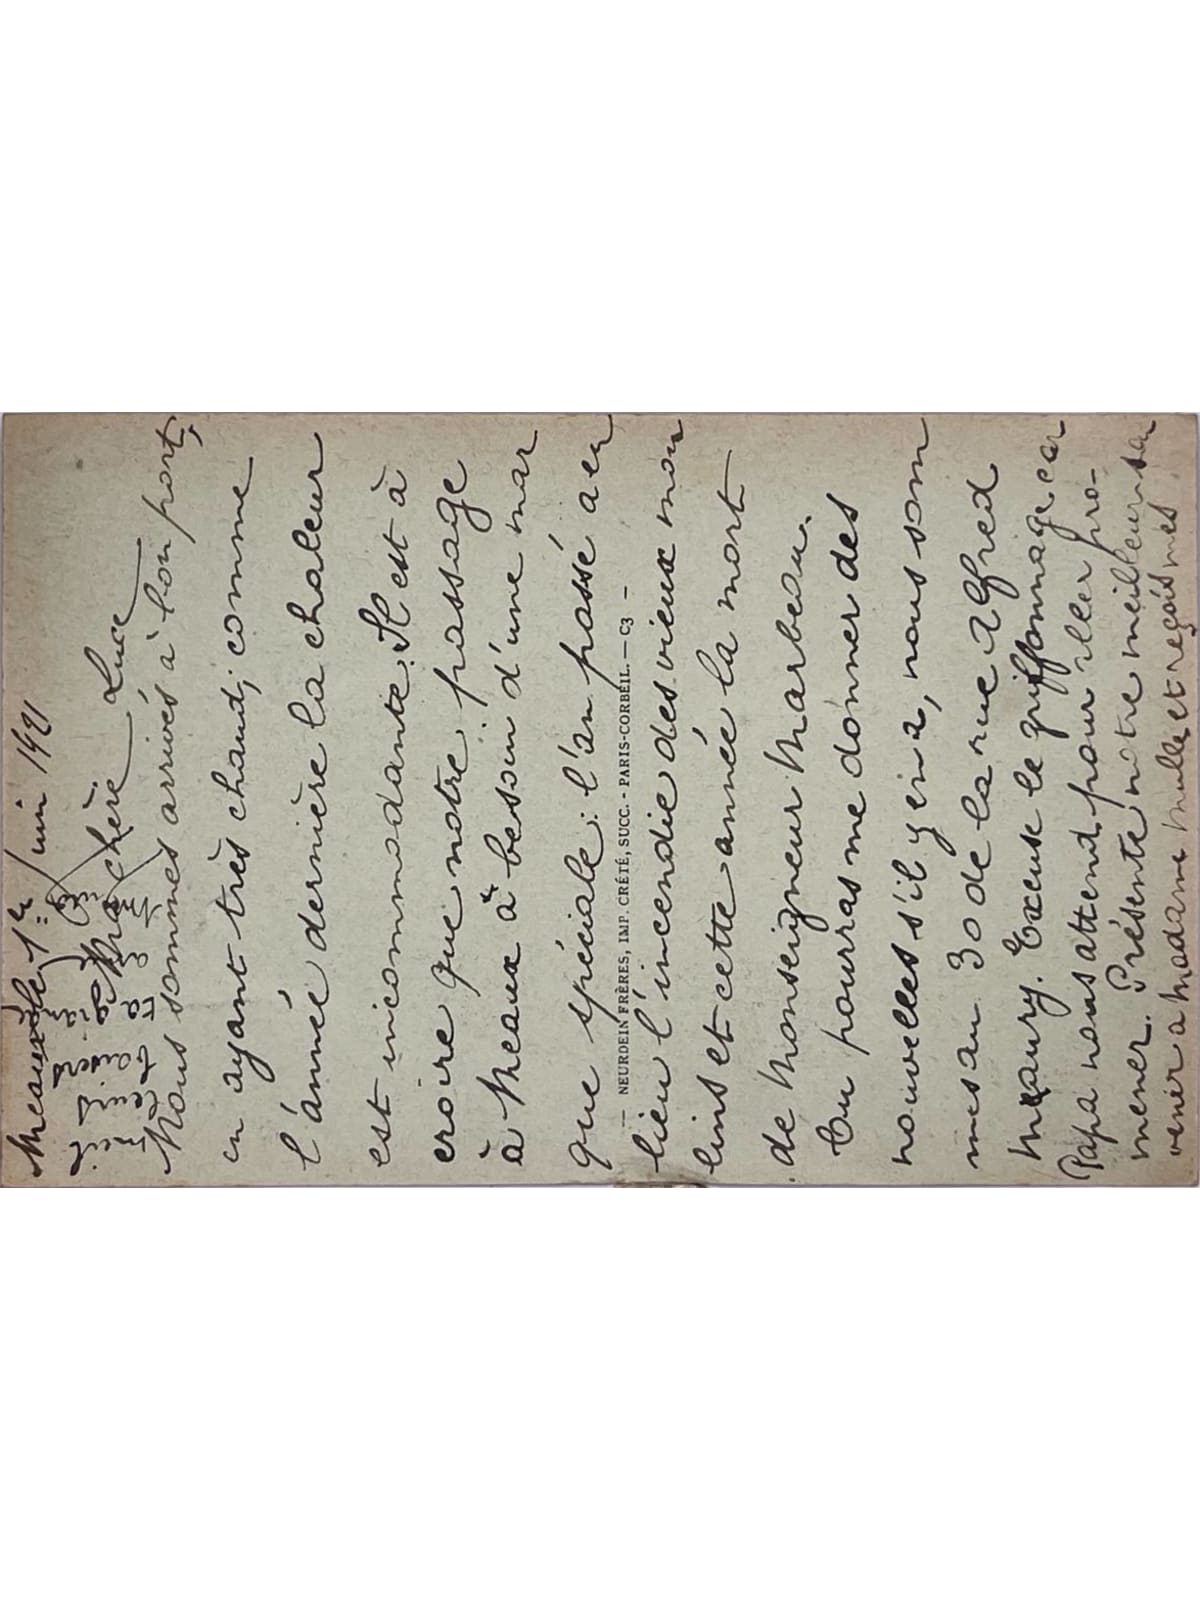 Meaux le 1er juin 1921
Ma chère Luce
Nous sommes arrivés à bon port,
en ayant très chaud; comme
l'année dernière la chaleur
est incommodante. Il est à
croire que notre passage
à Meaux à besoin d'une mar
que spéciale: l'an passé a eu
— NEURDEIN FRÈRES, IMP. CRÉTÉ, SUCC. - PARIS-CORBEIL. — C3 —
lieu l'incendie des vieux mou
lins et cette année la mort
de Monseigneur Marbeau.
Tu pourras me donner des
nouvelles s'il y en a, nous som
mes au 30 de la rue Alfred
Maury. Excuse le griffonnage car
Papa nous attend pour aller pro-
mener. Présente notre meilleur sou
venir a Madame Mulle et reçois mes